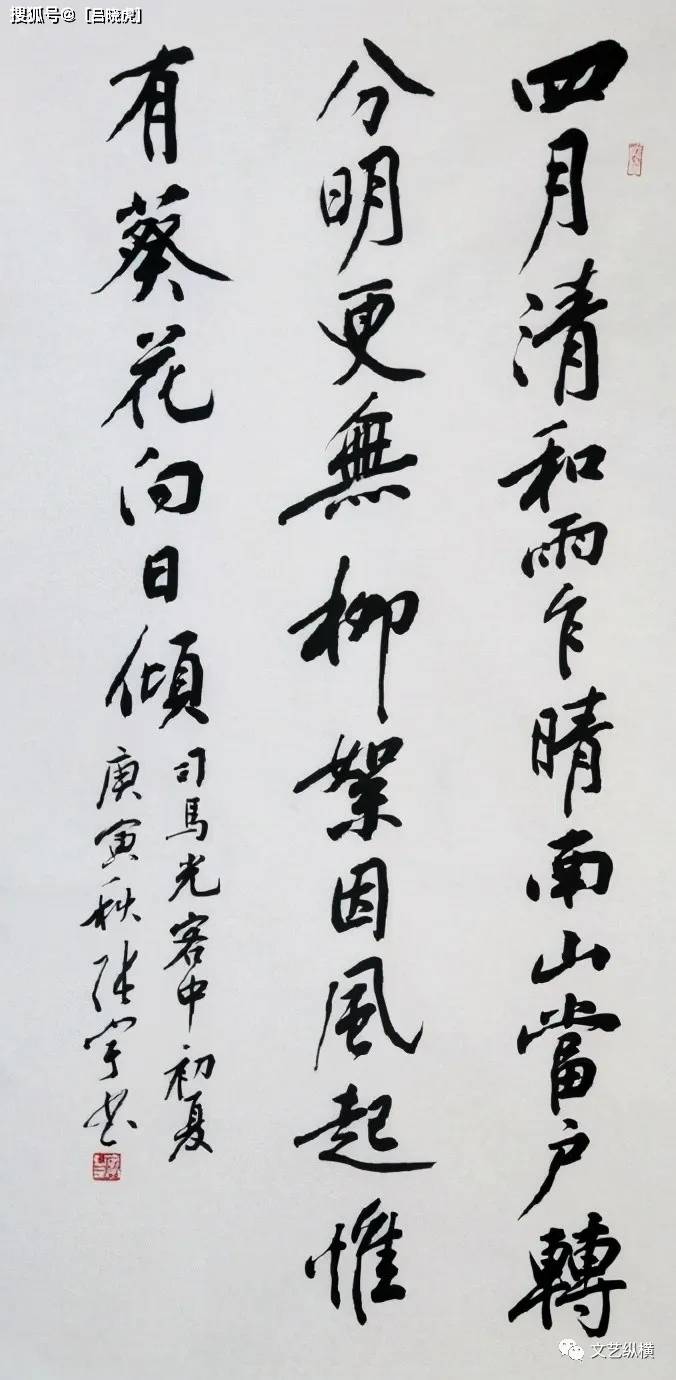 搜狐号@［吕晓虎］
四月清和雨乍晴南山當户轉
分明更無柳絮因風起惟
有葵花向日傾
司馬光客中初夏
庚寅秋张宇书
文艺纵横